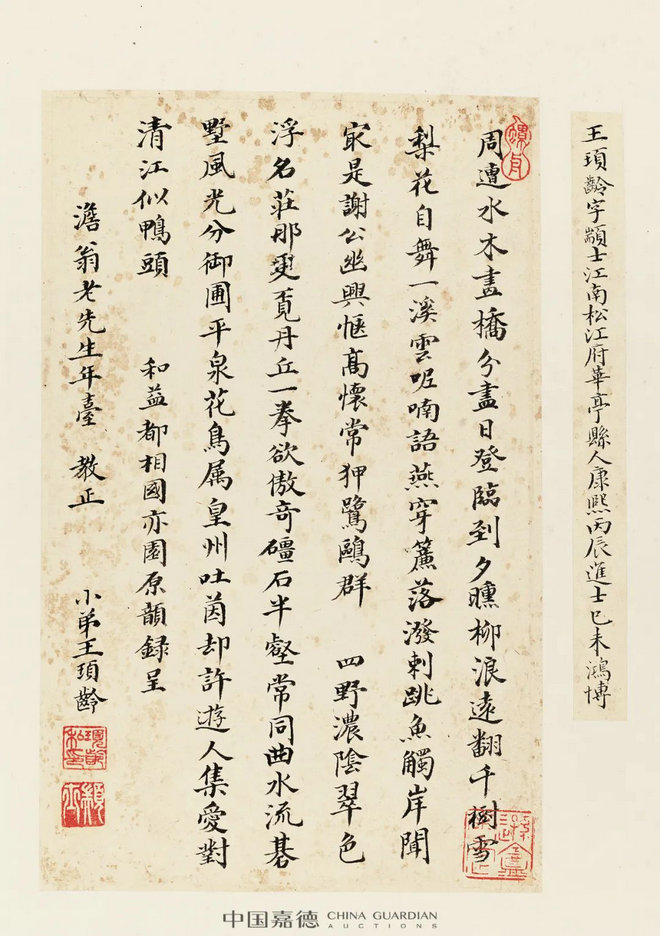 王頊齡字顓士江南松江府華亭縣人康熙丙辰進士己未鴻博
周遭水木畫橋分盡日登臨到夕曛柳浪遠翻千樹雪
梨花自舞一溪雲呢喃語燕穿簾落潑剌跳魚觸岸聞
家是謝公幽興愜高懷常狎鷺鷗群 四野濃陰翠色
浮名莊那更覓丹丘一拳欲傲奇礓石半壑常同曲水流碁
墅風光分御圃平泉花鳥属皇州吐茵却許遊人集愛對
清江似鴨頭 和益都相國亦園原韻録呈
澹翁老先生年臺 教正
小弟王頊齡
中国嘉德 CHINA GUARDIAN
AUCTIONS